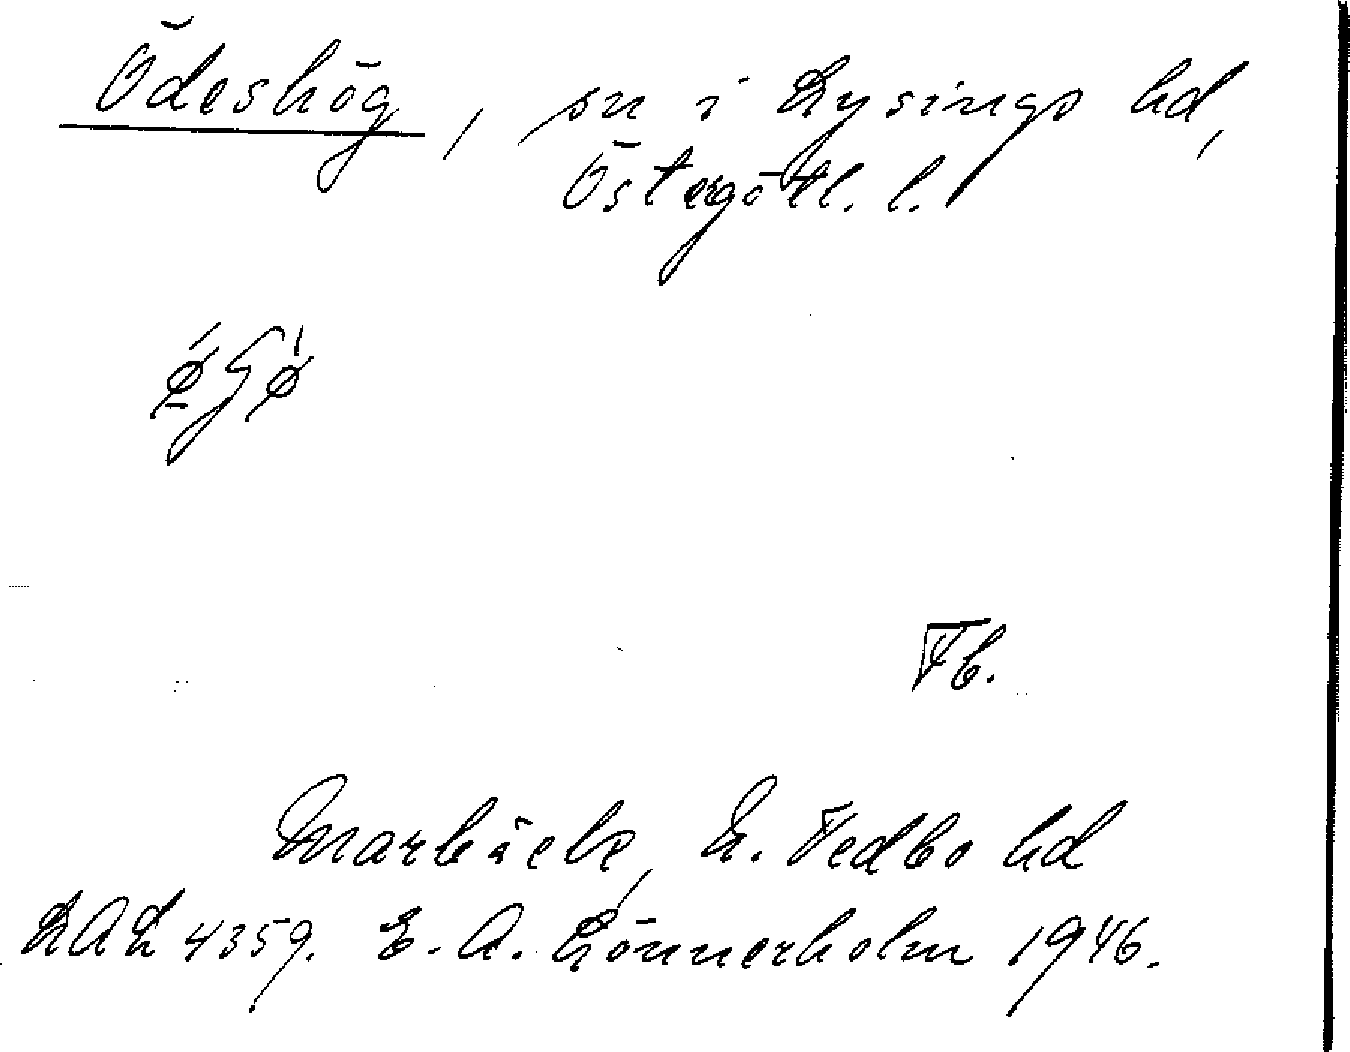 Ödeshög, sn i Lysings hd,
Östergötl. l.
Fb.
Marbäck, N. Vedbo hd
LAL 4359. E. A. Lönnerholm 1946.